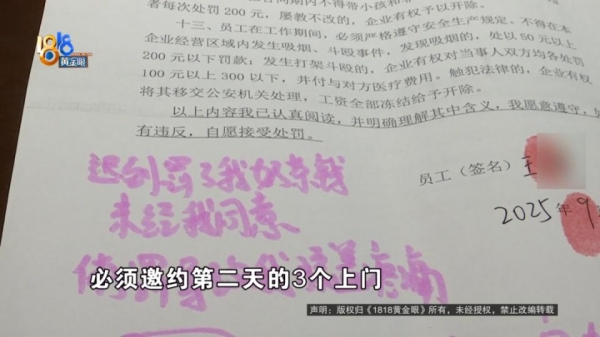 者每次处罚 200 元，屡教不改的，企业有权予以开除。
十三、员工在工作期间，必须严格遵守安全生产规定。不得在本
企业经营区域内发生吸烟、斗殴事件，发现吸烟的，处以 50 元以上
200 元以下罚款；发生打架斗殴的，企业有权对当事人双方均各处罚
100 元以上 300 以下，并付与对方医疗费用。触犯法律的，企业有权
将其移交公安机关处理，工资全部冻结给予开除。
以上内容我已认真阅读，并明确理解其中含义，我愿意遵守，
有违反，自愿接受处罚。
1818
黄金眼
员工（签名）王
2025年9
迟到罚了我好来钱
未经我同意
必须邀约第二天的3个上门
声明：版权归《1818黄金眼》所有，未经授权，禁止改编转载